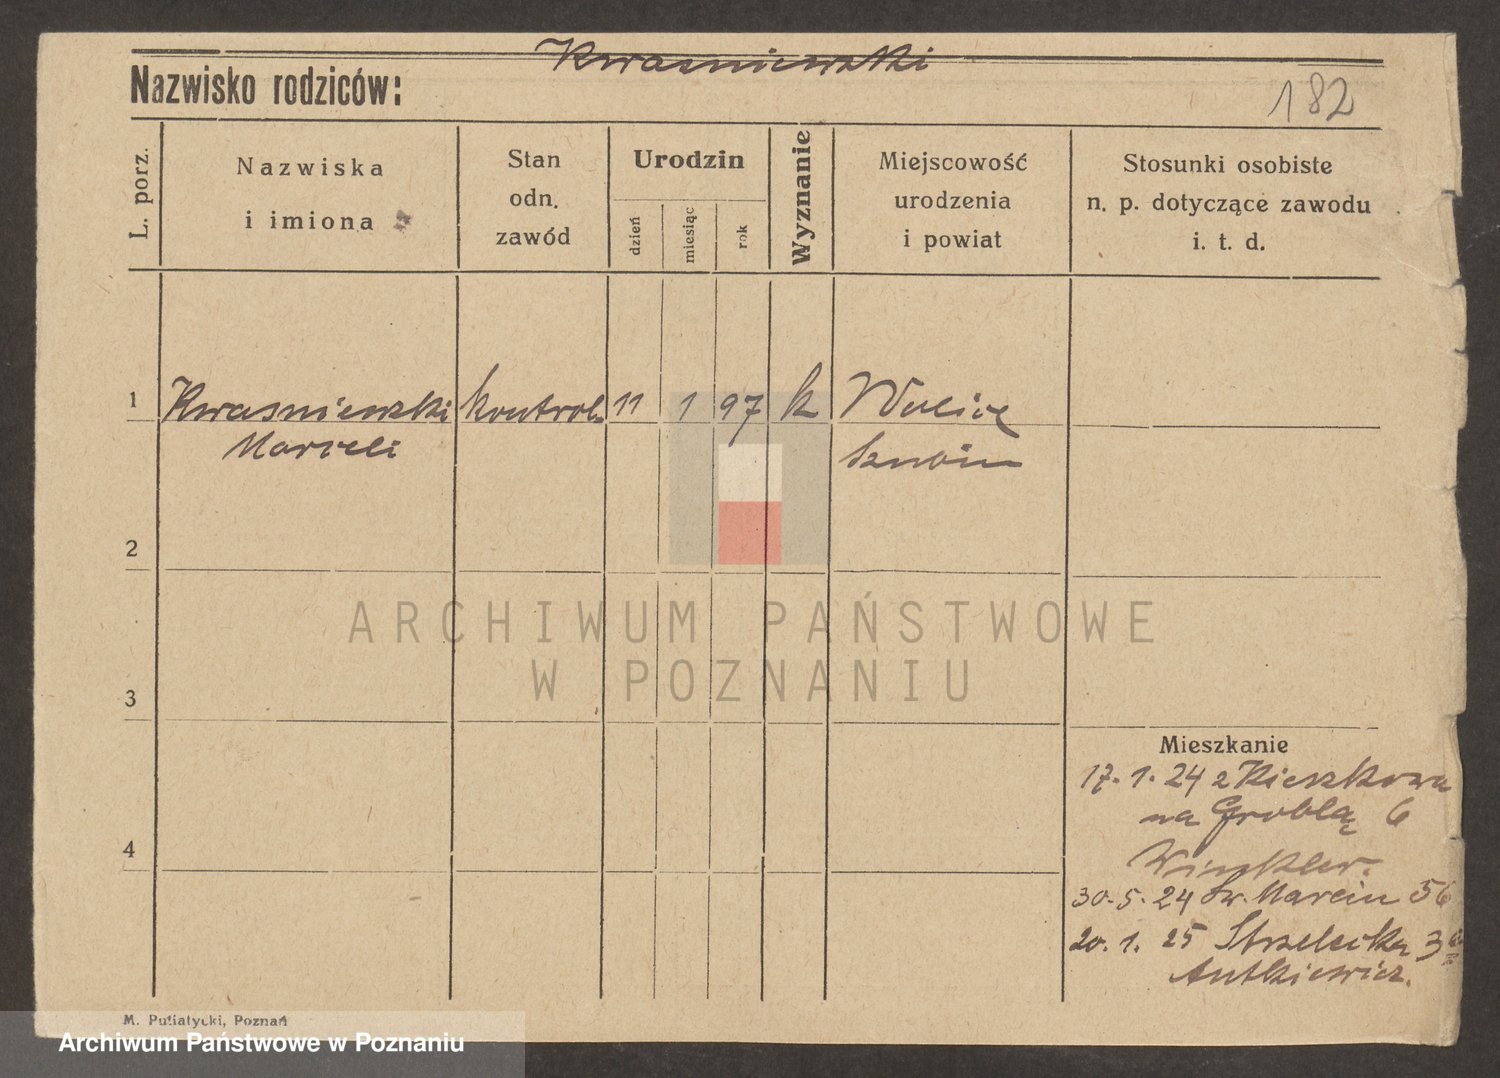 Kwasniewski
Nazwisko rodziców:
182
L. porz.
Nazwiska
i imiona
Stan
odn.
zawód
Urodzin
dzień
miesiąc
rok
Wyznanie
Miejscowość
urodzenia
i powiat
Stosunki osobiste
n. p. dotyczące zawodu
i. t. d.
1 Kwasniewski kontrol. 11 1 97 k
Marceli
2
3
4
Mieszkanie
17. 1. 24 z Kieszkowa
na Groblą 6
Winkler.
30. 5. 24 Św. Marcin 56
20. 1. 25 Strzelecka 3
Antkiewicz.
ARCHIWUM PAŃSTWOWE
W POZNANIU
M. Putiatycki, Poznań
Archiwum Państwowe w Poznaniu